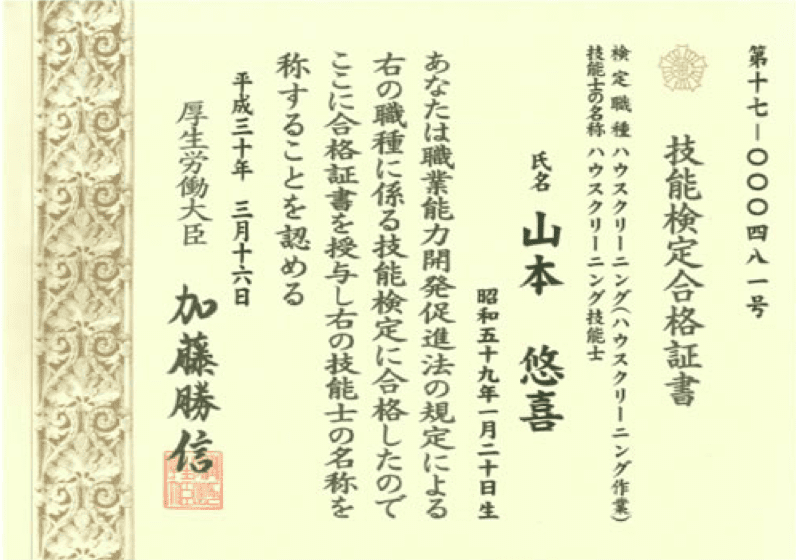 第十七―〇〇〇四八一号
技能検定合格証書
検定職種 ハウスクリーニング(ハウスクリーニング作業)
技能士の名称 ハウスクリーニング技能士
氏名 山本 悠喜
昭和五十九年一月二十日生
あなたは職業能力開発促進法の規定による
右の職種に係る技能検定に合格したので
ここに合格証書を授与し右の技能士の名称を
称することを認める
平成三十年 三月十六日
厚生労働大臣 加藤勝信